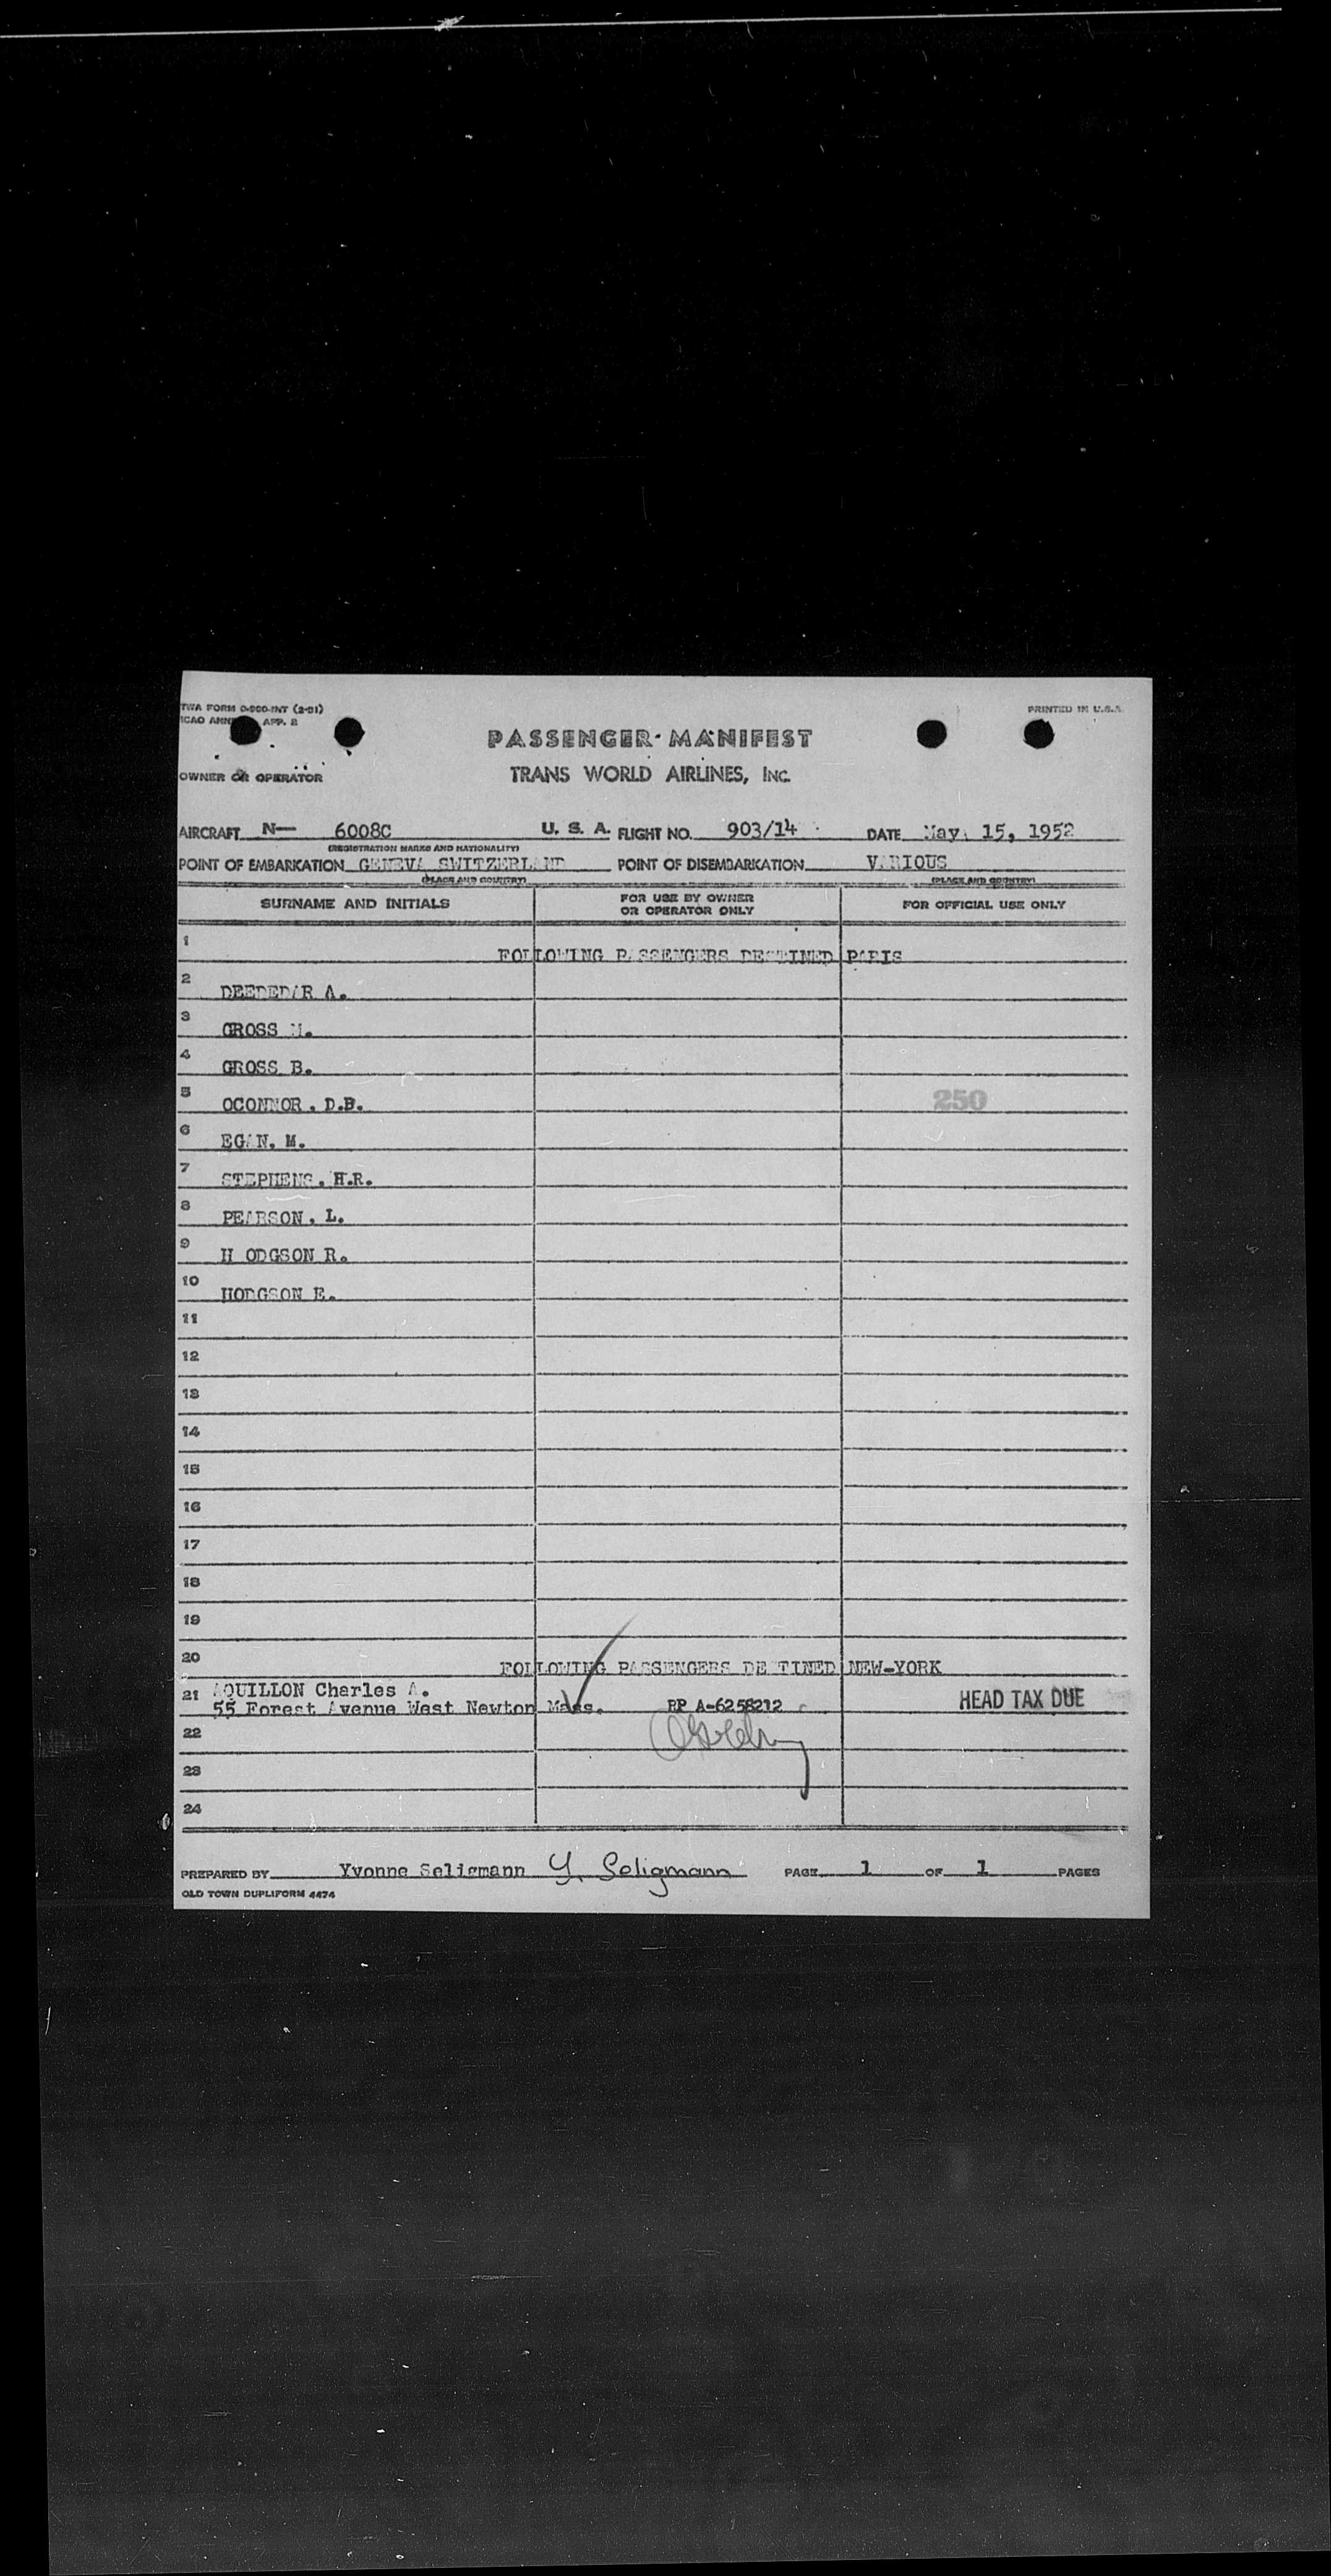 TWA FORM O-900-INT (2-51)
PRINTED IN U.S.A.
ICAO ANNEX APP. 2
PASSENGER MANIFEST
OWNER OR OPERATOR
TRANS WORLD AIRLINES, INC.
AIRCRAFT N— 6008C U. S. A. FLIGHT NO. 903/14 DATE May 15, 1952
(REGISTRATION MARKS AND NATIONALITY)
POINT OF EMBARKATION GENEVA SWITZERLAND POINT OF DISEMBARKATION VARIOUS
(PLACE AND COUNTRY) (PLACE AND COUNTRY)
SURNAME AND INITIALS FOR USE BY OWNER OR OPERATOR ONLY FOR OFFICIAL USE ONLY
1 FOLLOWING PASSENGERS DESTINED PARIS
2 DEEDEDAR A.
3 GROSS M.
4 GROSS B.
5 OCONNOR. D.B. 250
6 EGAN. M.
7 STEPHENS. H.R.
8 PEARSON. L.
9 H ODGSON R.
10 HODGSON E.
11
12
13
14
15
16
17
18
19
20 FOLLOWING PASSENGERS DESTINED NEW-YORK
21 AQUILLON Charles A.
55 Forest Avenue West Newton Mass. RP A-6258212 HEAD TAX DUE
22
23
24
PREPARED BY Yvonne Seligmann Y. Seligmann PAGE 1 OF 1 PAGES
OLD TOWN DUPLIFORM 4474